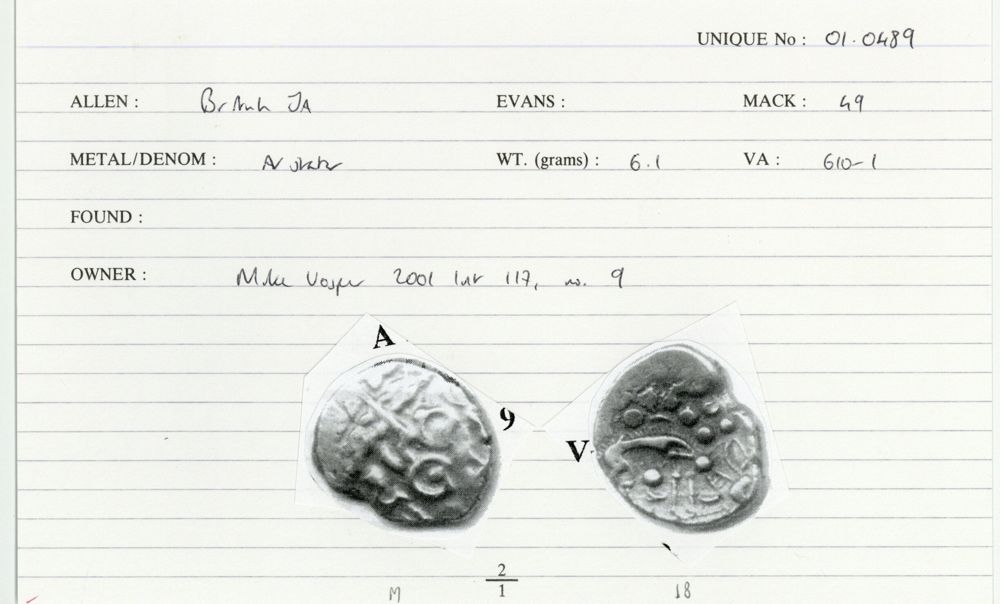 UNIQUE No : 01.0489
ALLEN : British JA EVANS : MACK : 49
METAL/DENOM : AV stater WT. (grams) : 6.1 VA : 610-1
FOUND :
OWNER : Mike Vosper 2001 list 117, no. 9
A
9
V
2
M 1 18